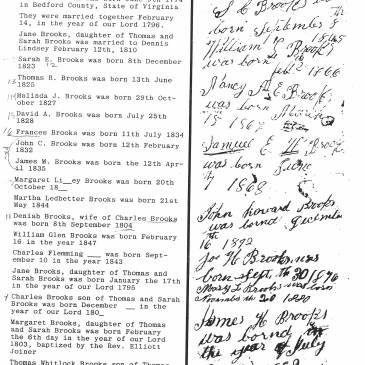 in Bedford County, State of Virginia
They were married together February
14, in the year of our Lord 1796.
Jane Brooks, daughter of Thomas and
Sarah Brooks was married to Dennis
Lindsey February 12th, 1810
Sarah E. Brooks was born 8th December
1823
Thomas R. Brooks was born 13th June
1825
Malinda J. Brooks was born 29th Oct-
ober 1827
David A. Brooks was born July 25th
1828
Frances Brooks was born 11th July 1834
John C. Brooks was born 12th February
1832
James M. Brooks was born the 12th Apr-
il 1835
Margaret Li__ey Brooks was born 20th
October 18__
Martha Ledbetter Brooks was born 21st
May 1844
Deniah Brooks, wife of Charles Brooks
was born 8th September 1804
William Glen Brooks was born February
16 in the year 1847
Charles Flemming ___ was born Sept-
ember 10 in the year 1843
Jane Brooks, daughter of Thomas and
Sarah Brooks was born January the 17th
in the year of our Lord 1795
Charles Brooks son of Thomas and Sarah
Brooks was born December __ in the
year of our Lord 180_
Margaret Brooks, daughter of Thomas
and Sarah Brooks was born February
the 6th day in the year of our Lord
1803, baptized by the Rev. Elliott
Joiner
Thomas Whitlock Brooks son of Thomas
S C Brooks
born september
William Brooks
was born
Feb 2 1866
Nancy A E Brooks
was born
15 1867
Samuel H Brooks
was born June
7 1868
John Howard Brooks
was bornd
16 1892
Joe H Brooks was
born Sept. 30 1896
Mary L Brooks was born
20 1880
James H Brooks
was bornd
the year July